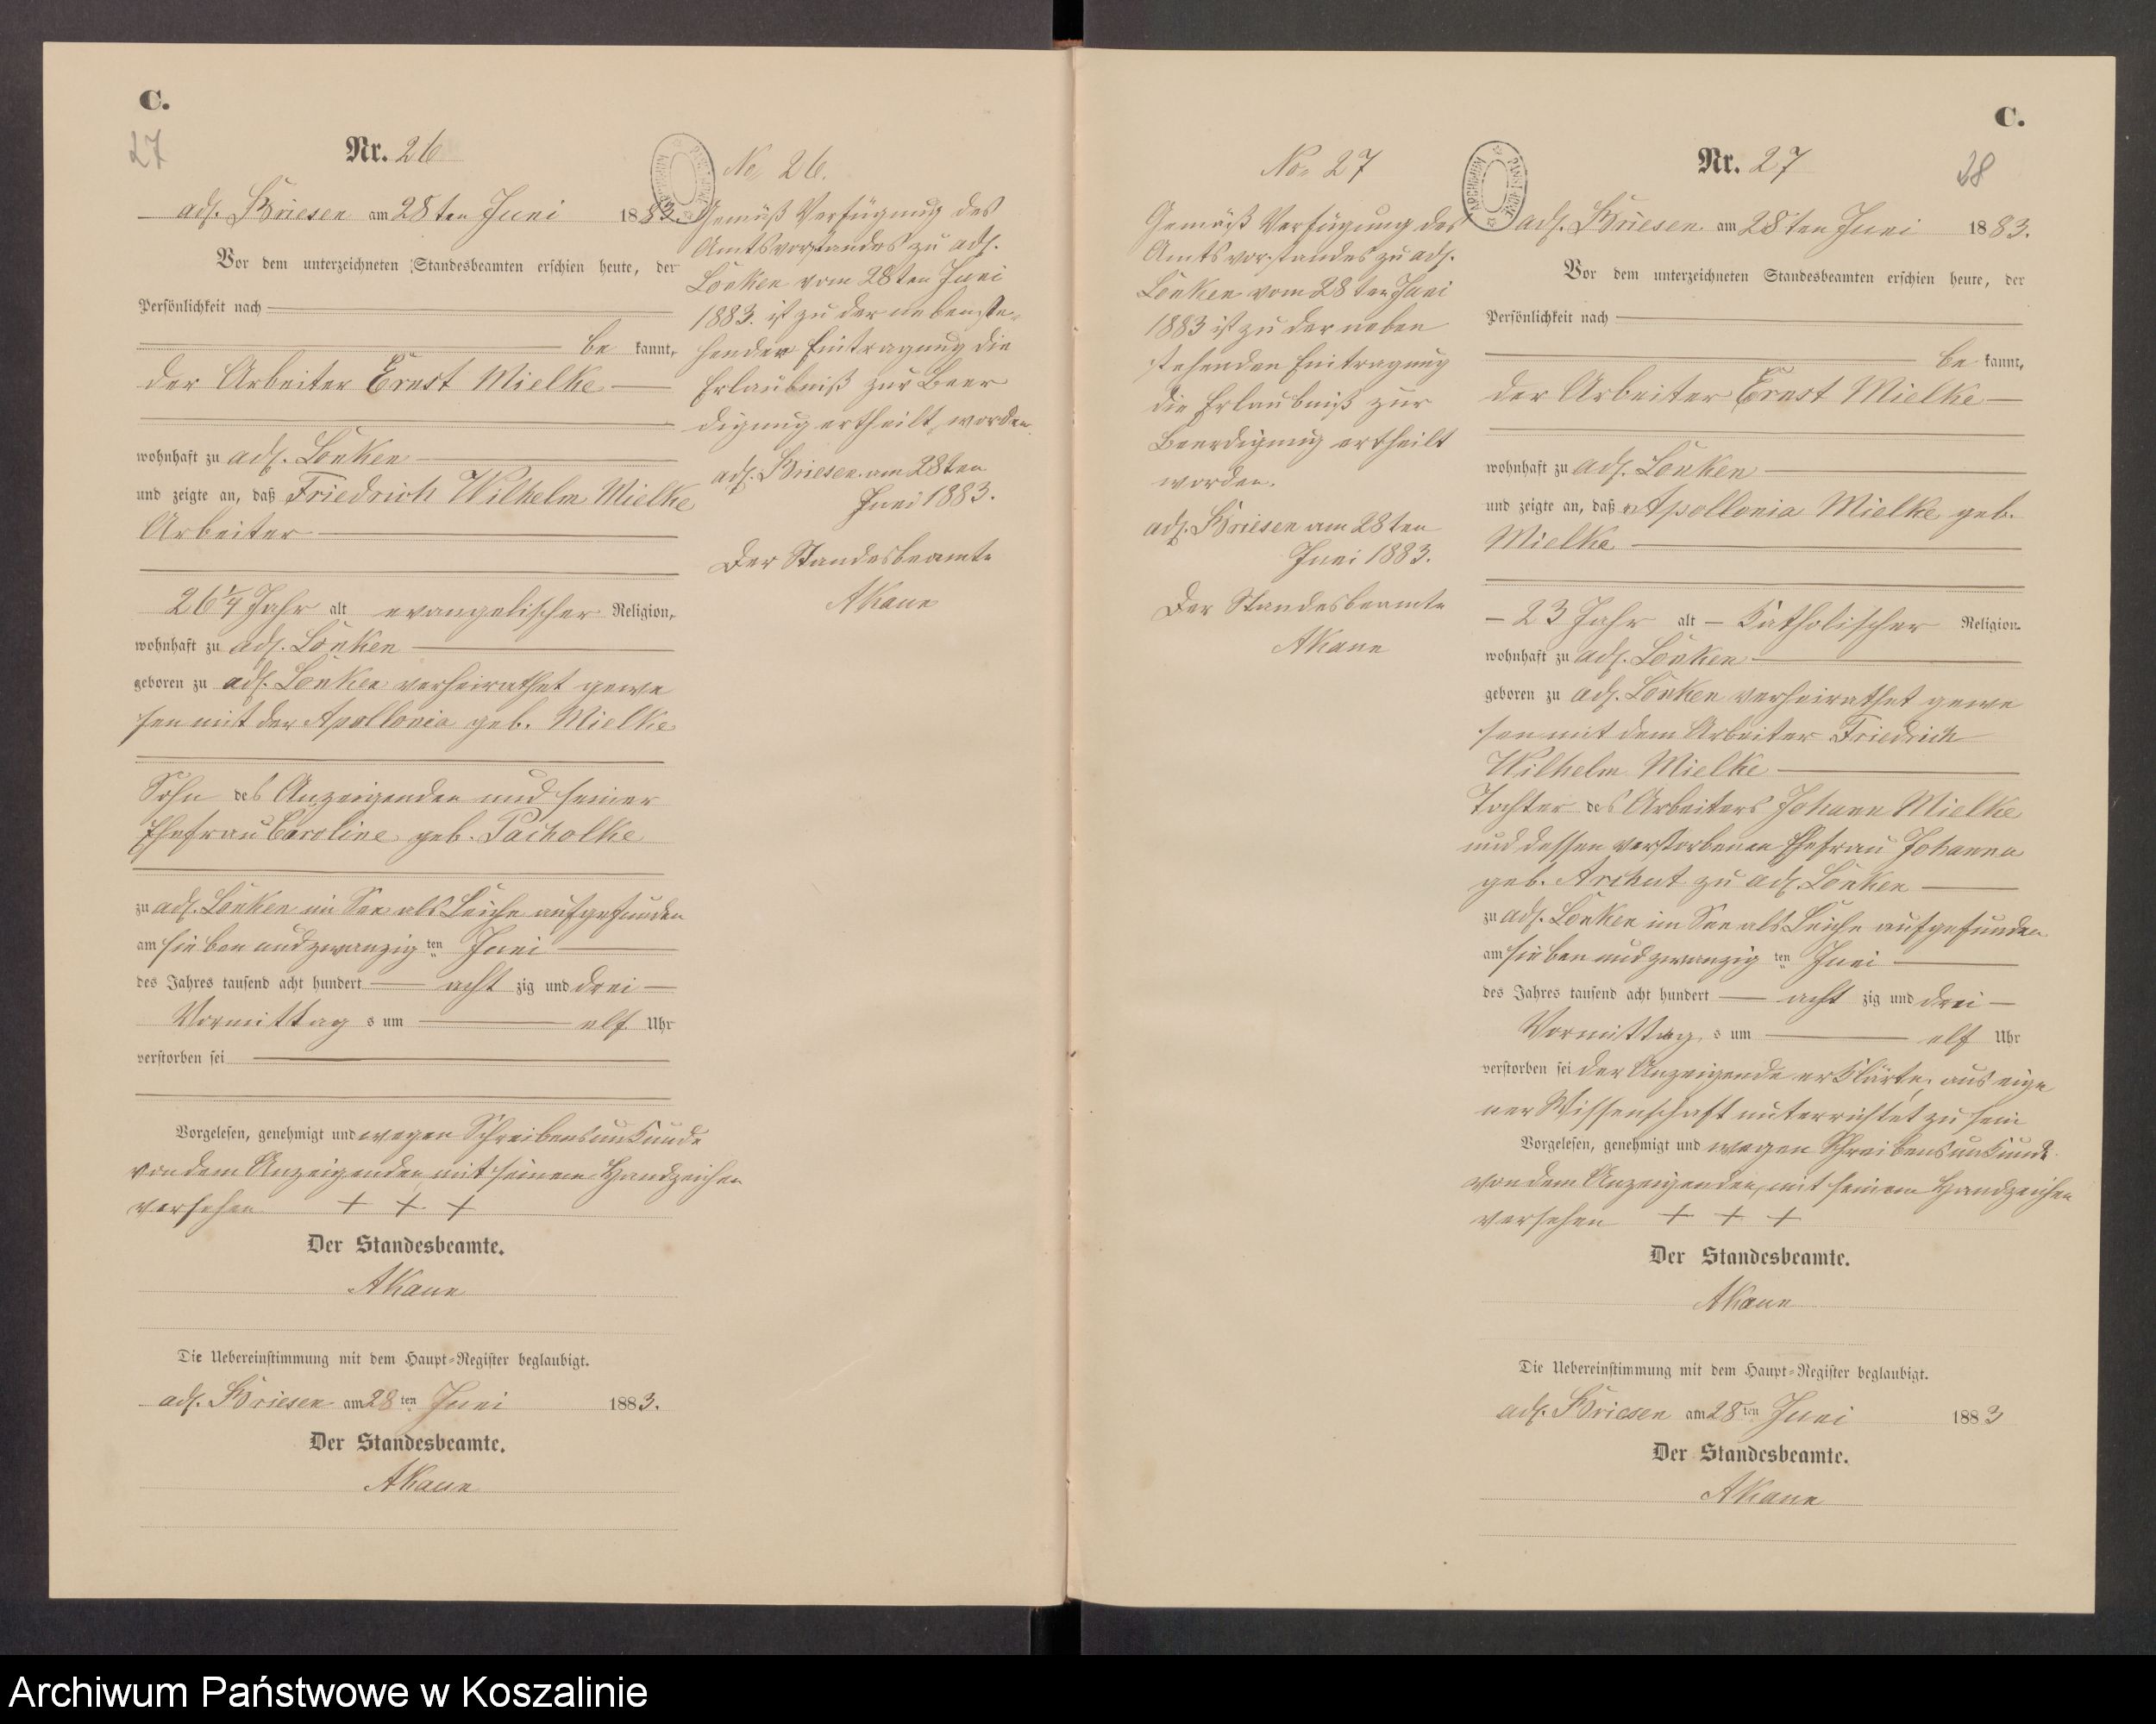 C.
27
Nr. 26
adl. Briesen am 28ten Juni 1883.
Vor dem unterzeichneten Standesbeamten erschien heute, der
Persönlichkeit nach
be kannt,
der Arbeiter Ernst Mielke
wohnhaft zu adl. Lonken
und zeigte an, daß Friedrich Wilhelm Mielke
Arbeiter
26 1/4 Jahr alt evangelischer Religion,
wohnhaft zu adl. Lonken
geboren zu adl. Lonken verheirathet gewe
sen mit der Apollonia geb. Mielke
Sohn des Anzeigenden und seiner
Ehefrau Caroline geb. Pacholke
zu adl. Lonken im See als Leiche aufgefunden
am sieben und zwanzig ten Juni
des Jahres tausend acht hundert acht zig und drei
Vormittag s um elf Uhr
verstorben sei
Vorgelesen, genehmigt und wegen Schreibensunkunde
von dem Anzeigenden mit seinem Handzeichen
versehen + + +
Der Standesbeamte.
AKaun
Die Uebereinstimmung mit dem Haupt-Register beglaubigt.
adl. Briesen am 28 ten Juni 1883.
Der Standesbeamte.
AKaun
No 26.
Gemäß Verfügung des
Amtsvorstandes zu adl.
Lonken vom 28ten Juni
1883. ist zu der nebenste
henden Eintragung die
Erlaubniß zur Beer
digung ertheilt worden.
adl. Briesen am 28ten
Juni 1883.
Der Standesbeamte
AKaun
No 27
Gemäß Verfügung des
Amtsvorstandes zu adl.
Lonken vom 28ten Juni
1883 ist zu der neben
stehenden Eintragung
die Erlaubniß zur
Beerdigung ertheilt
worden.
adl. Briesen am 28ten
Juni 1883.
Der Standesbeamte
AKaun
C.
28
Nr. 27
adl. Briesen am 28ten Juni 1883.
Vor dem unterzeichneten Standesbeamten erschien heute, der
Persönlichkeit nach
be kannt,
der Arbeiter Ernst Mielke
wohnhaft zu adl. Lonken
und zeigte an, daß Apollonia Mielke geb.
Mielke
23 Jahr alt Katholischer Religion
wohnhaft zu adl. Lonken
geboren zu adl. Lonken verheirathet gewe
sen mit dem Arbeiter Friedrich
Wilhelm Mielke
Tochter des Arbeiters Johann Mielke
und dessen verstorbenen Ehefrau Johanna
geb. Archut zu adl. Lonken
zu adl. Lonken im See als Leiche aufgefunden
am sieben und zwanzig ten Juni
des Jahres tausend acht hundert acht zig und drei
Vormittag s um elf Uhr
verstorben sei der Anzeigende erklärte, aus eige
ner Wissenschaft unterrichtet zu sein
Vorgelesen, genehmigt und wegen Schreibensunkunde
von dem Anzeigenden, mit seinem Handzeichen
versehen + + +
Der Standesbeamte.
AKaun
Die Uebereinstimmung mit dem Haupt-Register beglaubigt.
adl. Briesen am 28 ten Juni 1883
Der Standesbeamte.
AKaun
Archiwum Państwowe w Koszalinie